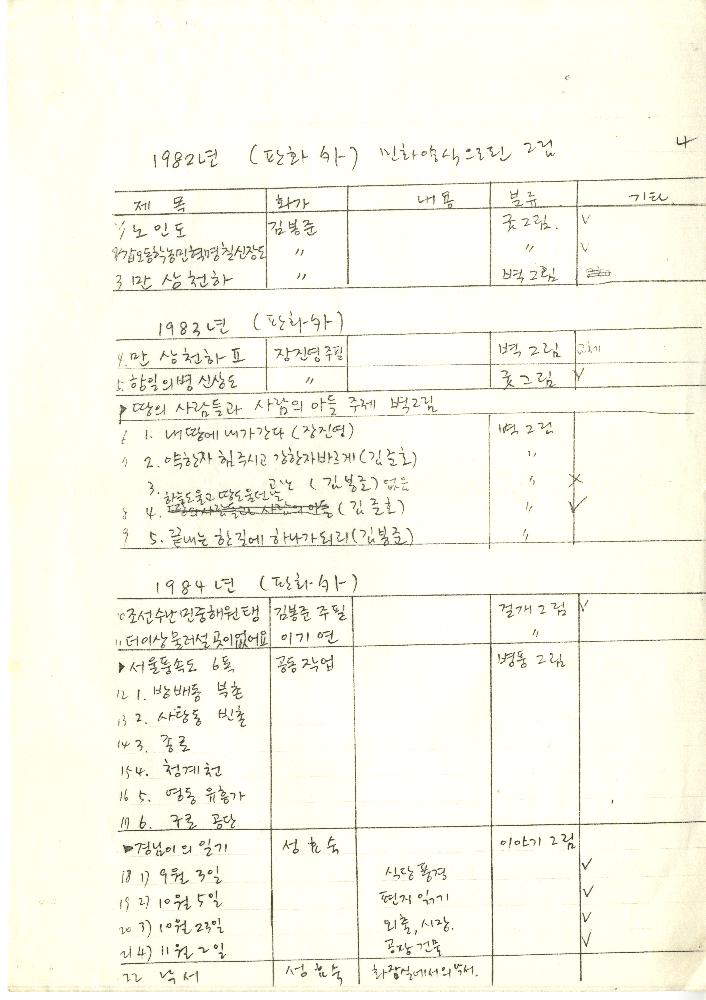 4
1982년 (판화 外) 민화양식으로된 그림
제 목 화가 내용 분류 기타
1/ 노인도 김봉준 굿그림. ✓
2/ 갑오동학농민혁명칠신장도 〃 〃 ✓
3 만상천하 〃 벽그림
1983년 (판화 外)
4. 만상천하 Ⅱ 장진영 주필 벽그림 교체
5. 항일의병신상도 〃 굿그림 ✓
▶ 땅의 사람들과 사람의 아들 주제 벽그림
6 1. 내땅에 내가간다 (장진영) 벽그림
7 2. 약한자 힘주시고 강한자바르게 (김준호) 〃
3. (김봉준) 없음 〃 ×
하늘도울고 땅도울던날
8 4. 땅의사람들과 사람의 아들 (김준호) 〃 ✓
9 5. 끝내는 한길에 하나가되리 (김봉준) 〃
1984년 (판화 外)
10 조선수난민중해원탱 김봉준 주필 걸개그림 ✓
11 더이상물러설곳이없어요 이기연 〃
▶ 서울풍속도 6폭 공동작업 병풍그림
12 1. 방배동 부촌
13 2. 사당동 빈촌
14 3. 종로
15 4. 청계천
16 5. 영동 유흥가
17 6. 구로 공단
▶ 경님이의 일기 성효숙 이야기 그림
18 1) 9월 3일 식당풍경 ✓
19 2) 10월 5일 편지 읽기 ✓
20 3) 10월 23일 외출, 시장. ✓
21 4) 11월 2일 공장건물 ✓
22 낙서 성효숙 화장실에서의 낙서.